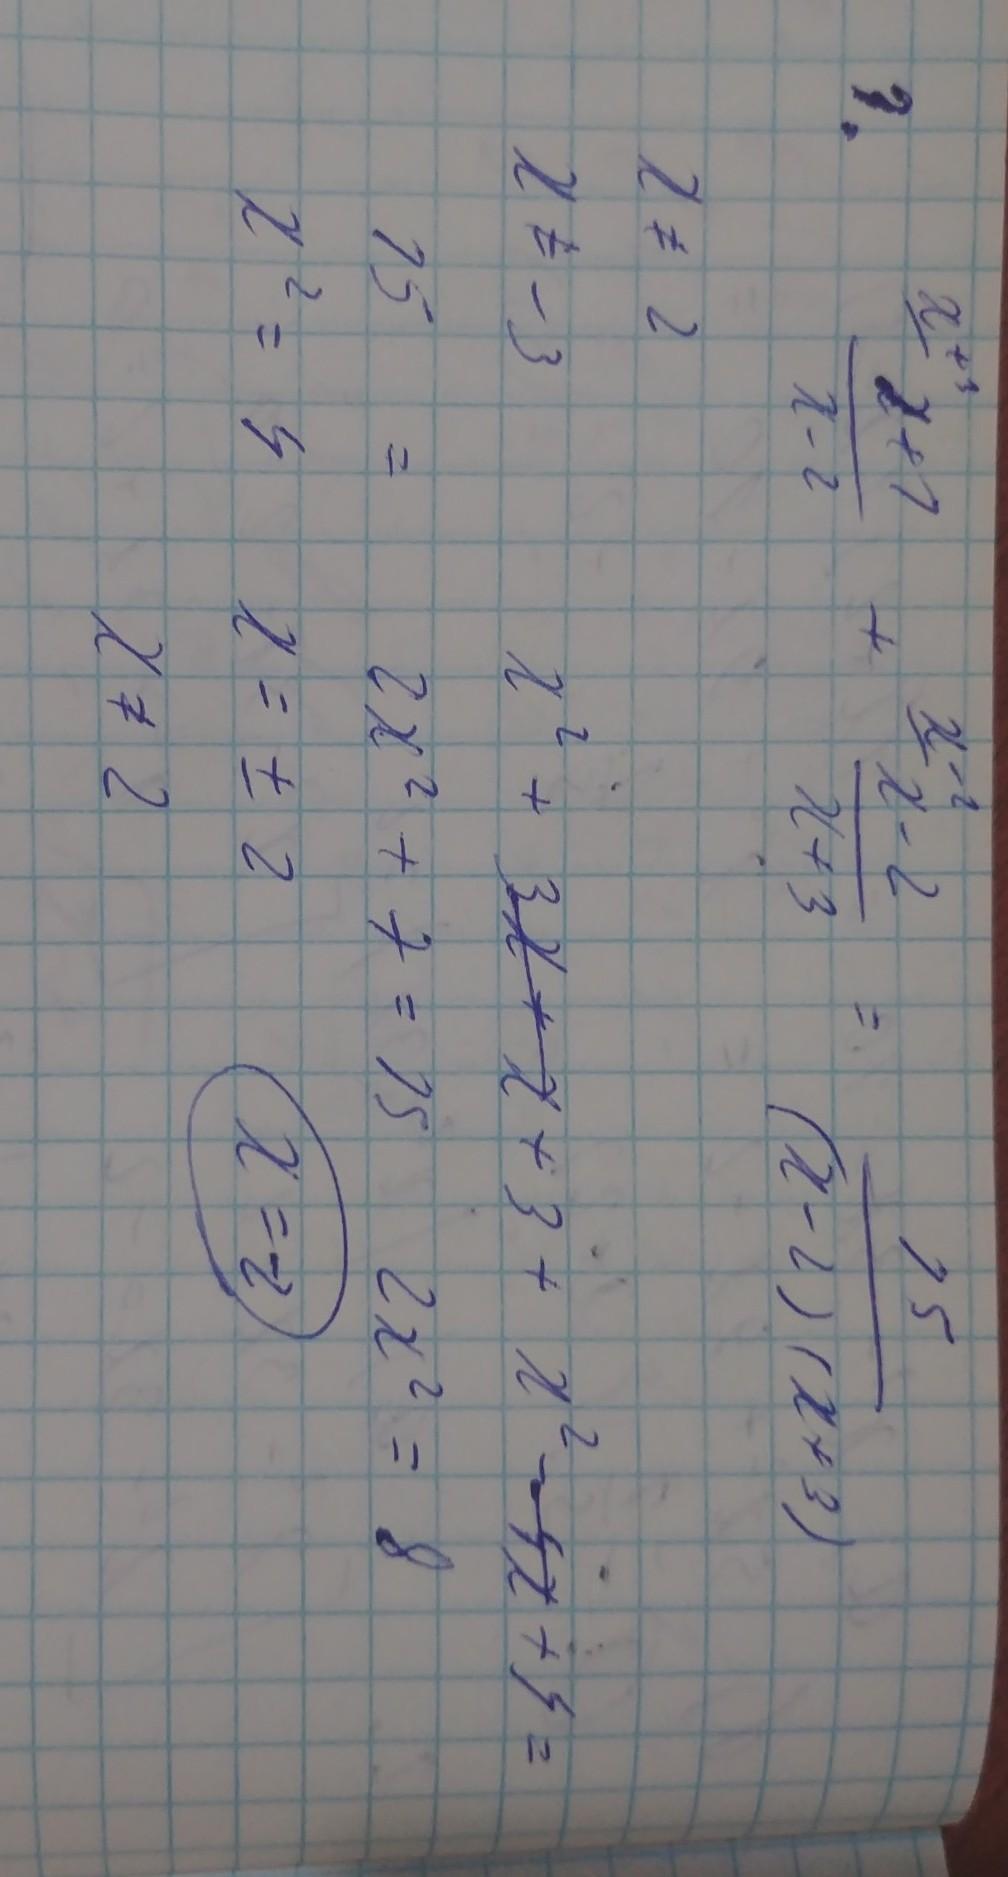 1. \frac{x+1}{x-2} x+3 + \frac{x-2}{x+3} x-2 = \frac{15}{(x-2)(x+3)}
x ≠ 2
x ≠ -3 x² + 3x + x + 3 + x² - 4x + 4 =
15 = 2x² + 7 = 15 2x² = 8
x² = 4 x = ± 2 x = -2
x ≠ 2